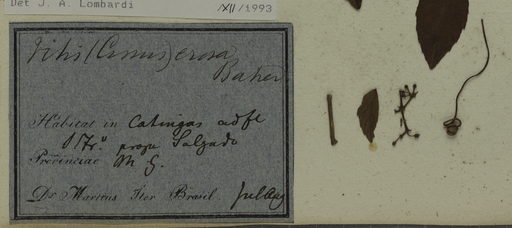 Det J. A. Lombardi /XII/1993
Vitis (Cissus) erosa
Baker
Habitat in Catingas ad fl
S Fr. prope Salgado
Provinciae M G.
Dr. Martius Iter Brasil. Jul Aug